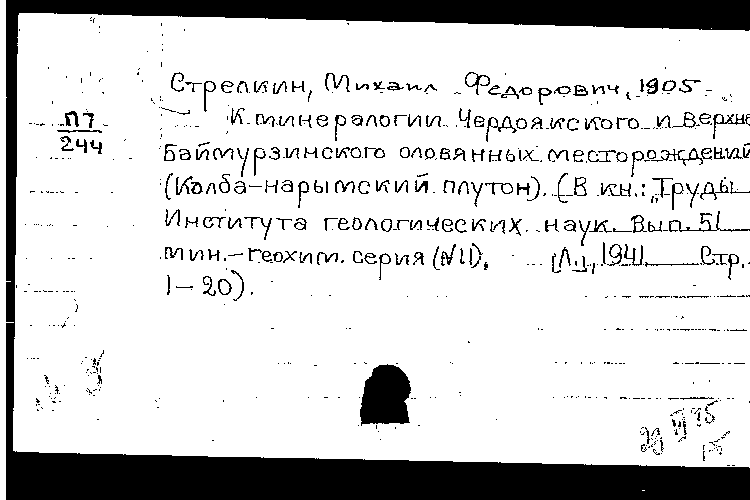 Стрелкин, Михаил Федорович, 1905-
П7
244
К минералогии Чердоякского и Верхне
Баймурзинского оловянных месторождений
(Колба-нарымский плутон). (В кн.: „Труды
Института геологических наук. Вып. 51
мин.-геохим. серия (№11). [Л.], 1941. Стр.
1-20).